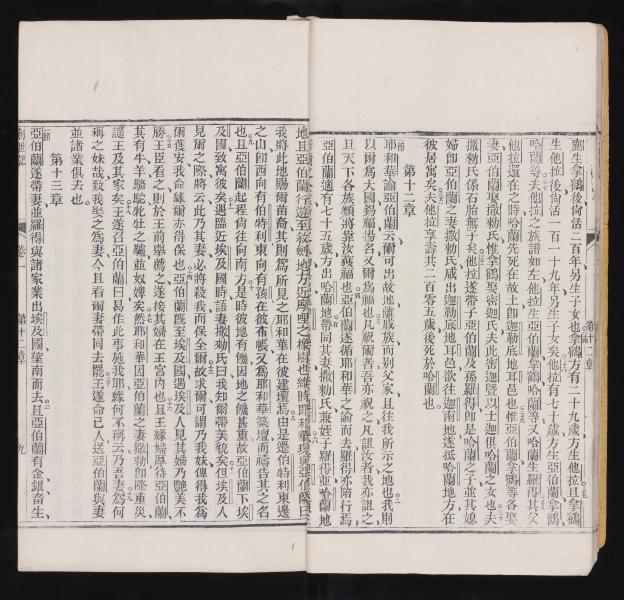 鹿生拿鶴後尚活二百年另生子女也拿鶴方有二十九歲方生他拉且拿鶴
生他拉後尚活一百一十九年另生子女矣他拉有七十歲方生亞伯蘭拿鶴
哈蘭等夫他拉之族譜如左他拉生亞伯蘭拿鶴哈蘭等又哈蘭生羅得其父
他拉還在之時哈蘭先死在故土卽迦勒底地耳邑也惟亞伯蘭拿鶴等各娶
妻亞伯蘭娶撒勑氏惟拿鶴娶密迦氏夫此密迦曁以士迦俱哈蘭之女也夫
撒勑氏係石胎無子矣他拉遂帶子亞伯蘭及孫羅得卽是哈蘭之子並其媳
婦卽亞伯蘭之妻撒勑氏咸出迦勒底地耳邑欲往迦南地遂抵哈蘭地方在
彼居寓矣夫他拉享壽共二百零五歲後死於哈蘭也
第十二章
耶和華諭亞伯蘭云爾可出故地離戚族而别父家且往我所示之地也我則
以爾爲大國錫福揚名又爾爲福也凡祝爾者吾亦祝之凡詛汝者我亦詛之
且天下各族類將靠汝獲福也亞伯蘭遂循耶和華之諭而去羅得亦陪行焉
亞伯蘭適有七十五歲方出哈蘭地帶同其妻撒勑氏兼姪子羅得並哈蘭地
地且亞伯蘭行遊至叙劍地方近摩理之橡樹也維時耶和華現與亞伯蘭曰
我將此地賜爾苗裔其則爲所見之耶和華在彼建壇焉由是遷伯特利東邊
之山卽西向有伯特利東向有孩在彼布帳又爲耶和華築壇而禱告其之名
也且亞伯蘭起程尚往向南方是時彼地有饑因地之饑甚重故亞伯蘭下埃
及國致寓彼矣遇臨近埃及國時語妻撒勑氏曰我知爾帶美貌矣但埃及人
見爾之際將云此乃其妻必將殺我而保全爾故求爾可謂乃我妹俾得我爲
爾獲安我命緣爾亦得保也亞伯蘭旣至埃及國遇埃及人見其婦乃艷美不
勝王臣看之則於王前舉薦之遂接其婦在王宮內也且王緣婦厚待亞伯蘭
其有牛羊駱駝牝牡之驢並奴婢矣然耶和華因亞伯蘭之妻撒勑卽降重災
譴王及其家矣王遂召亞伯蘭曰易作此事施我耶緣何不稱云乃吾妻爲何
稱之妹哉致我娶之爲妻今且看爾妻帶同去罷王遂命已人送亞伯蘭與妻
並諸業俱去也
第十三章
亞伯蘭遂帶妻並羅得與諸家業出埃及國望南而去且亞伯蘭有金銀畜生
卷一
第十二章
九